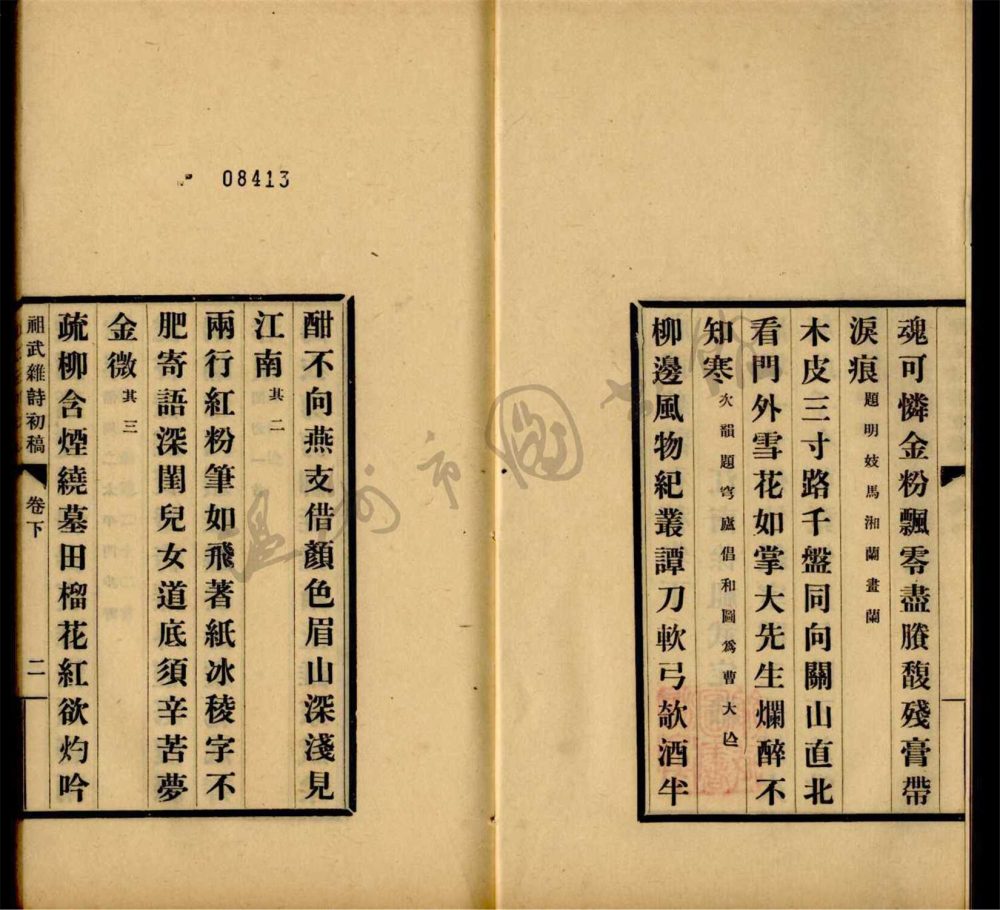 魂可憐金粉飄零盡賸馥殘膏帶
淚痕 題明妓馬湘蘭畫蘭
木皮三寸路千盤同向關山直北
看門外雪花如掌大先生爛醉不
知寒 次韻題穹廬倡和圖爲曹大
柳邊風物紀叢譚刀軟弓欹酒半
08413
酣不向燕支借顏色眉山深淺見
江南 其二
兩行紅粉筆如飛著紙冰稜字不
肥寄語深閨兒女道底須辛苦夢
金微 其三
疏柳含煙繞墓田榴花紅欲灼吟
祖武雜詩初稿 卷下 二
温州市圖書館